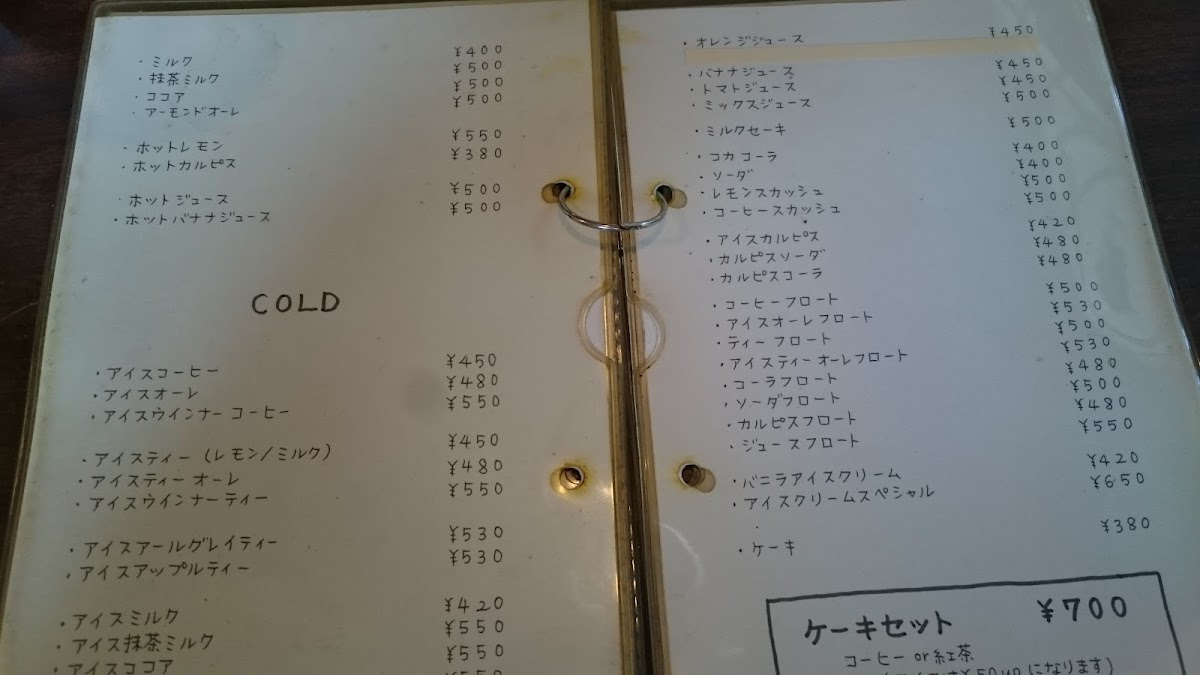 ・ミルク ¥400
・抹茶ミルク ¥500
・ココア ¥500
・アーモンドオーレ ¥500
・ホットレモン ¥550
・ホットカルピス ¥380
・ホットジュース ¥500
・ホットバナナジュース ¥500
COLD
・アイスコーヒー ¥450
・アイスオーレ ¥480
・アイスウインナーコーヒー ¥550
・アイスティー(レモン/ミルク) ¥450
・アイスティーオーレ ¥480
・アイスウインナーティー ¥550
・アイスアールグレイティー ¥530
・アイスアップルティー ¥530
・アイスミルク ¥420
・アイス抹茶ミルク ¥550
・アイスココア ¥550
・オレンジジュース ¥450
・バナナジュース ¥450
・トマトジュース ¥450
・ミックスジュース ¥500
・ミルクセーキ ¥500
・コカコーラ ¥400
・ソーダ ¥400
・レモンスカッシュ ¥500
・コーヒースカッシュ ¥500
・アイスカルピス ¥420
・カルピスソーダ ¥480
・カルピスコーラ ¥480
・コーヒーフロート ¥500
・アイスオーレフロート ¥530
・ティーフロート ¥500
・アイスティーオーレフロート ¥530
・コーラフロート ¥480
・ソーダフロート ¥500
・カルピスフロート ¥480
・ジュースフロート ¥550
・バニラアイスクリーム ¥420
・アイスクリームスペシャル ¥650
・ケーキ ¥380
ケーキセット ¥700
コーヒー or 紅茶
¥50upになります)